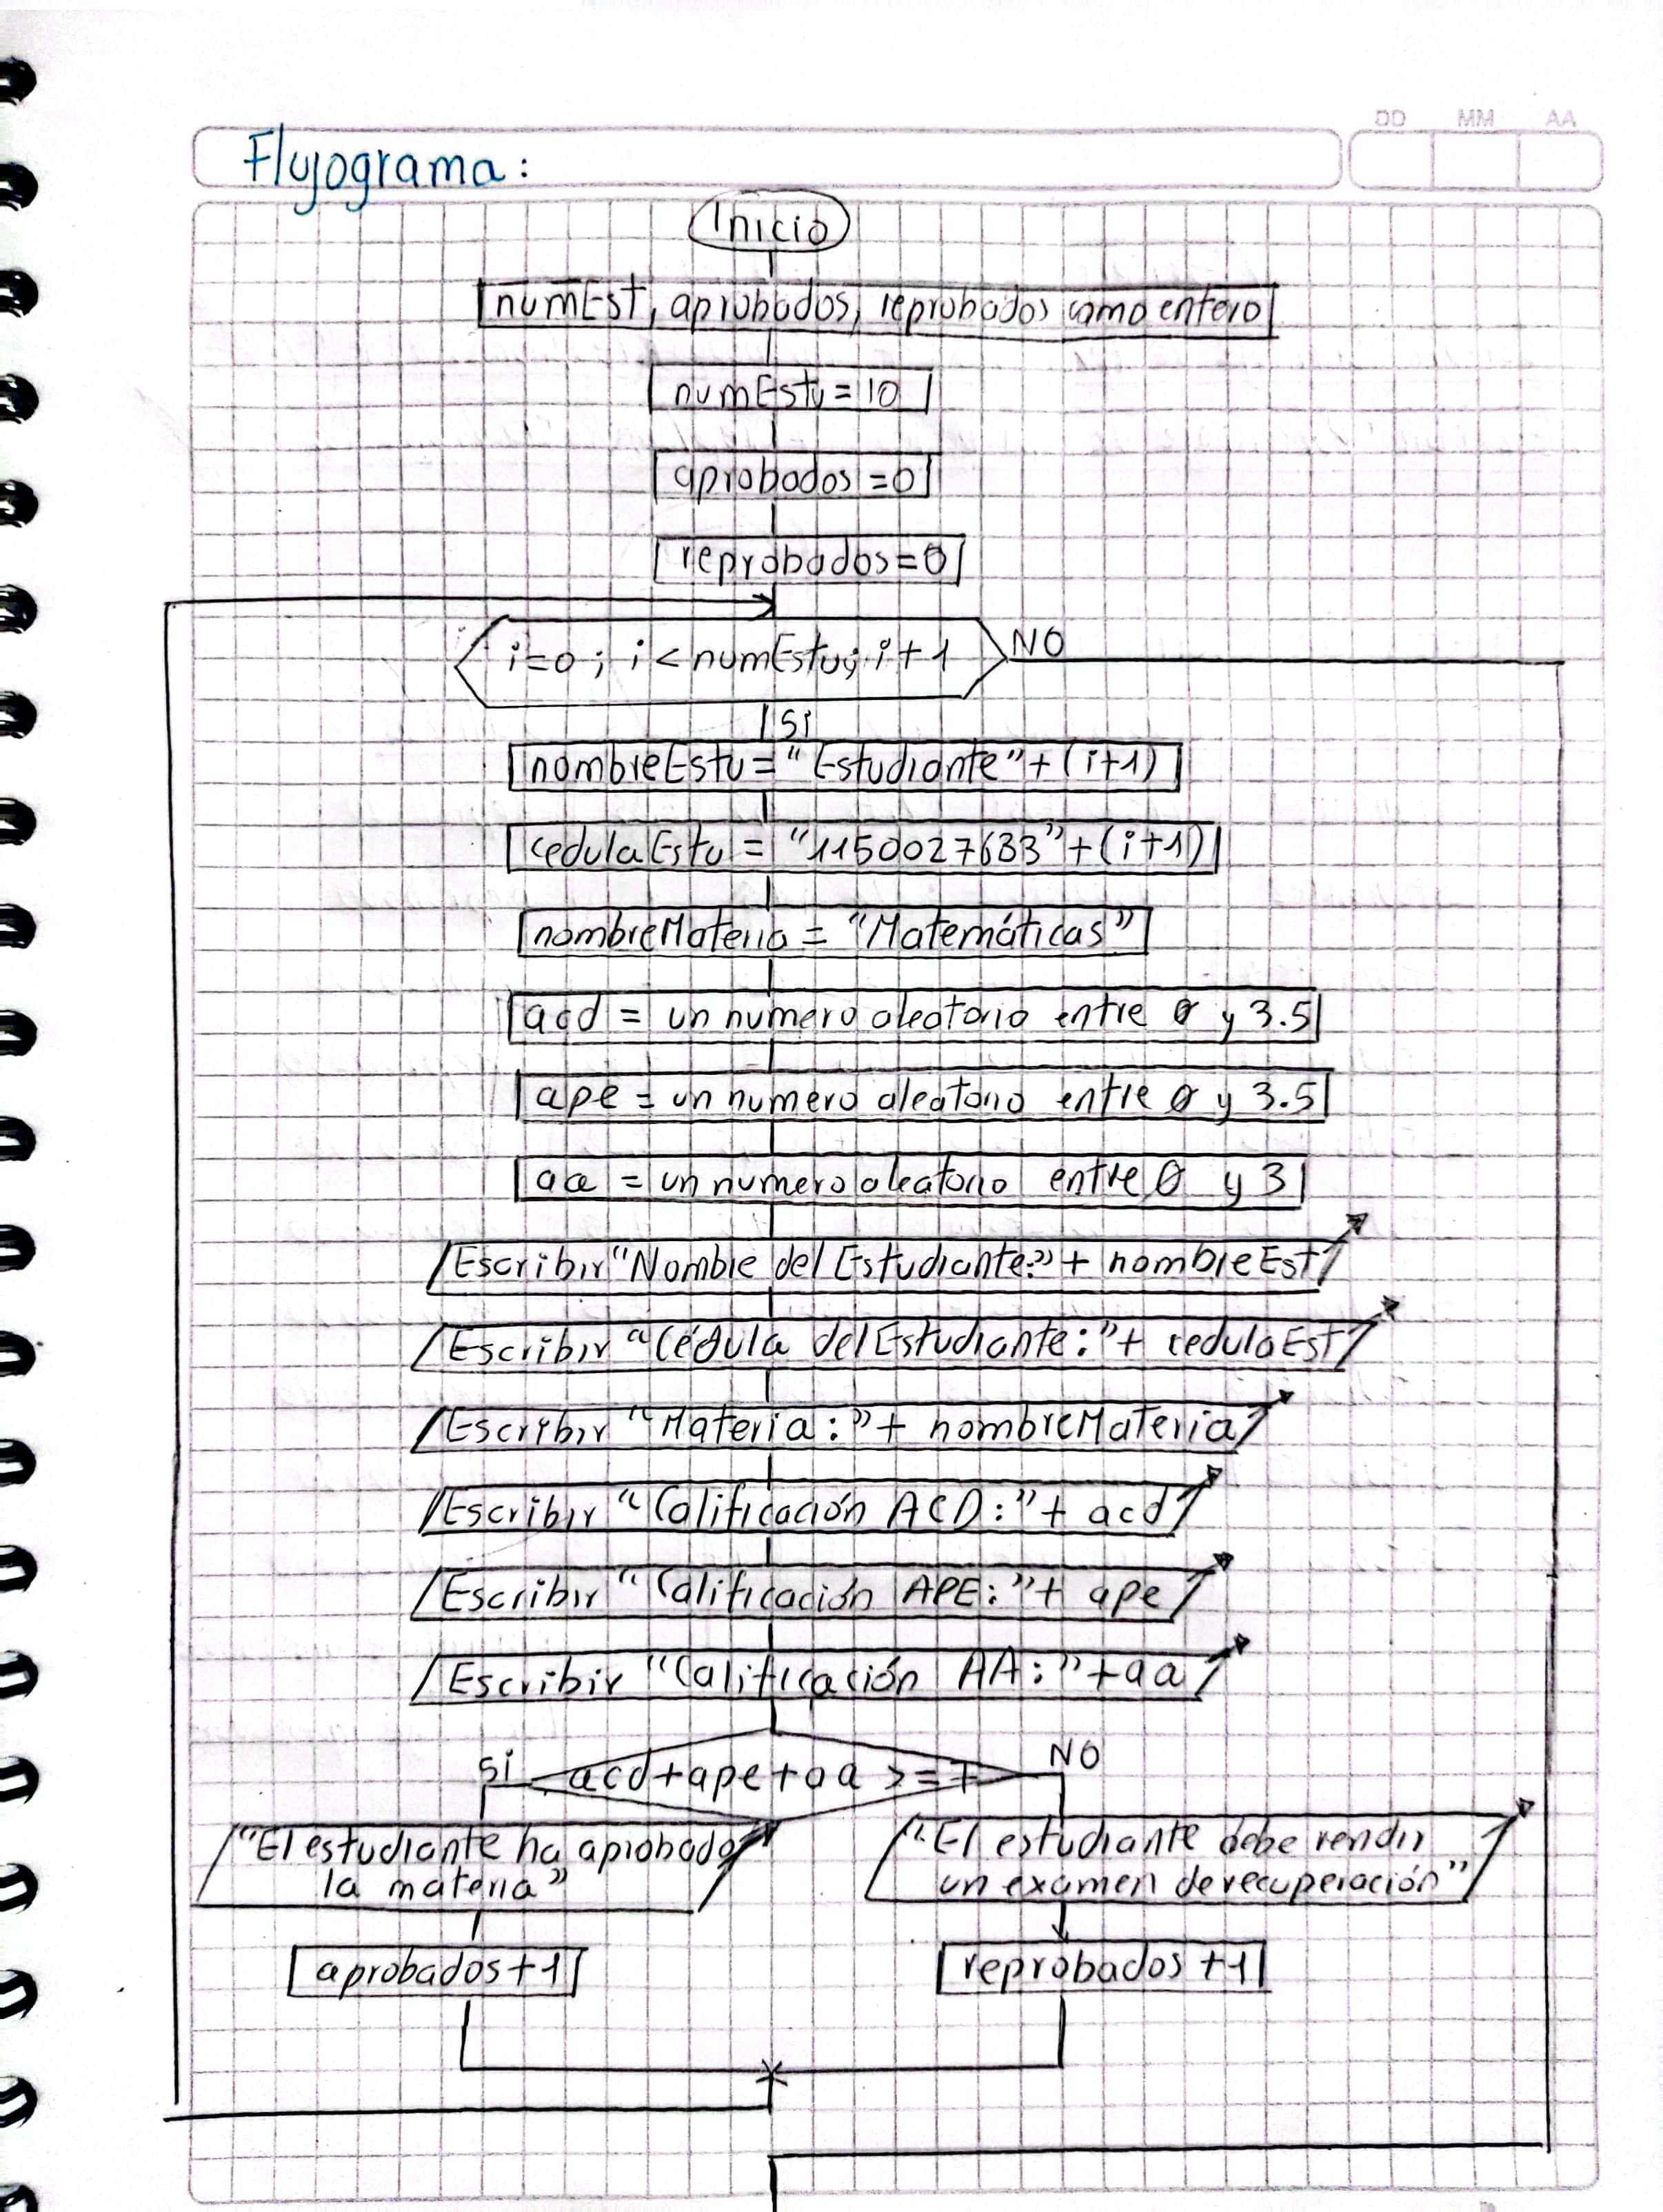 DD MM AA
Flujograma:
Inicio
numEst, aprobados, reprobados como entero
numEstu = 10
aprobados = 0
reprobados = 0
i=0 ; i < numEstu; i+1
NO
SI
nombreEstu = "Estudiante" + (i+1)
cedulaEstu = "1150027633" + (i+1)
nombreMateria = "Matemáticas"
acd = un numero aleatorio entre 0 y 3.5
ape = un numero aleatorio entre 0 y 3.5
aa = un numero aleatorio entre 0 y 3
Escribir "Nombre del Estudiante:" + nombreEst
Escribir "Cédula del Estudiante:" + cedulaEst
Escribir "Materia:" + nombreMateria
Escribir "Calificación ACD:" + acd
Escribir "Calificación APE:" + ape
Escribir "Calificación AA:" + aa
SI acd+ape+aa >= 7 NO
"El estudiante ha aprobado
la materia"
"El estudiante debe rendir
un examen de recuperación"
aprobados + 1
reprobados + 1